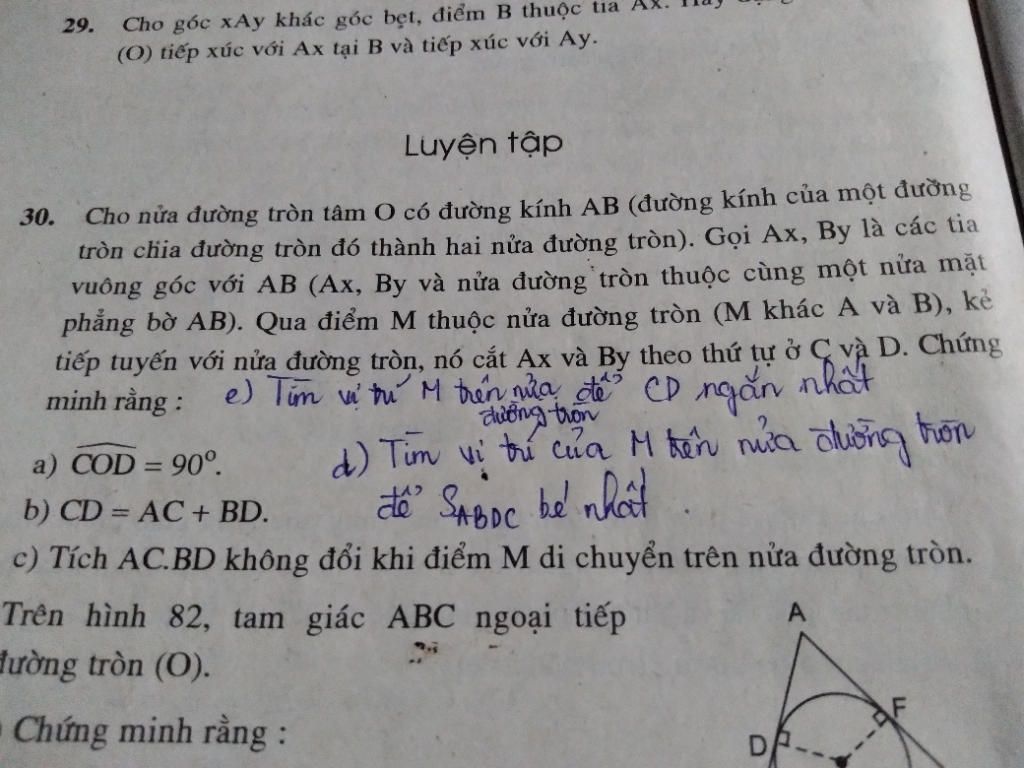 29. Cho góc xAy khác góc bẹt, điểm B thuộc tia Ax.
(O) tiếp xúc với Ax tại B và tiếp xúc với Ay.
Luyện tập
30. Cho nửa đường tròn tâm O có đường kính AB (đường kính của một đường
tròn chia đường tròn đó thành hai nửa đường tròn). Gọi Ax, By là các tia
vuông góc với AB (Ax, By và nửa đường tròn thuộc cùng một nửa mặt
phẳng bờ AB). Qua điểm M thuộc nửa đường tròn (M khác A và B), kẻ
tiếp tuyến với nửa đường tròn, nó cắt Ax và By theo thứ tự ở C và D. Chứng
minh rằng :
e) Tìm vị trí M trên nửa đường tròn để CD ngắn nhất
a) COD = 90°.
d) Tìm vị trí của M trên nửa đường tròn
để S_ABDC bé nhất.
b) CD = AC + BD.
c) Tích AC.BD không đổi khi điểm M di chuyển trên nửa đường tròn.
Trên hình 82, tam giác ABC ngoại tiếp
đường tròn (O).
Chứng minh rằng :
A
F
D